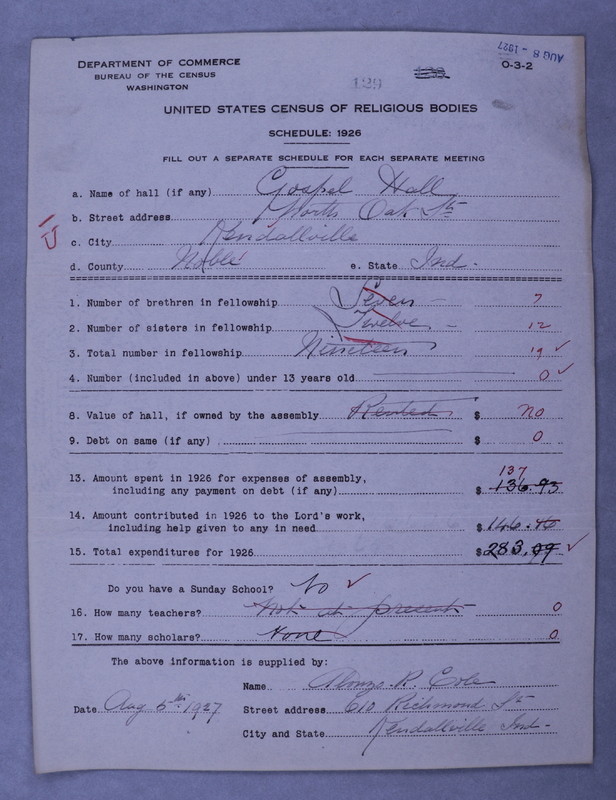 AUG 8 - 1927
DEPARTMENT OF COMMERCE
BUREAU OF THE CENSUS
WASHINGTON
129
O-3-2
UNITED STATES CENSUS OF RELIGIOUS BODIES
SCHEDULE: 1926
FILL OUT A SEPARATE SCHEDULE FOR EACH SEPARATE MEETING
a. Name of hall (if any) Gospel Hall
b. Street address North Oak St
U
c. City Kendallville
d. County Noble e. State Ind.
1. Number of brethren in fellowship Seven 7
2. Number of sisters in fellowship Twelve 12
3. Total number in fellowship Nineteen 19
4. Number (included in above) under 13 years old 0
8. Value of hall, if owned by the assembly Rented $ no
9. Debt on same (if any) $ 0
13. Amount spent in 1926 for expenses of assembly, 137
including any payment on debt (if any) $ 136.93
14. Amount contributed in 1926 to the Lord's work,
including help given to any in need $ 146.46
15. Total expenditures for 1926 $ 283.09
Do you have a Sunday School? No
16. How many teachers? Not at present 0
17. How many scholars? None 0
The above information is supplied by:
Name Alonzo R. Cole
Date Aug 5th 1927 Street address 610 Richmond St
City and State Kendallville Ind.